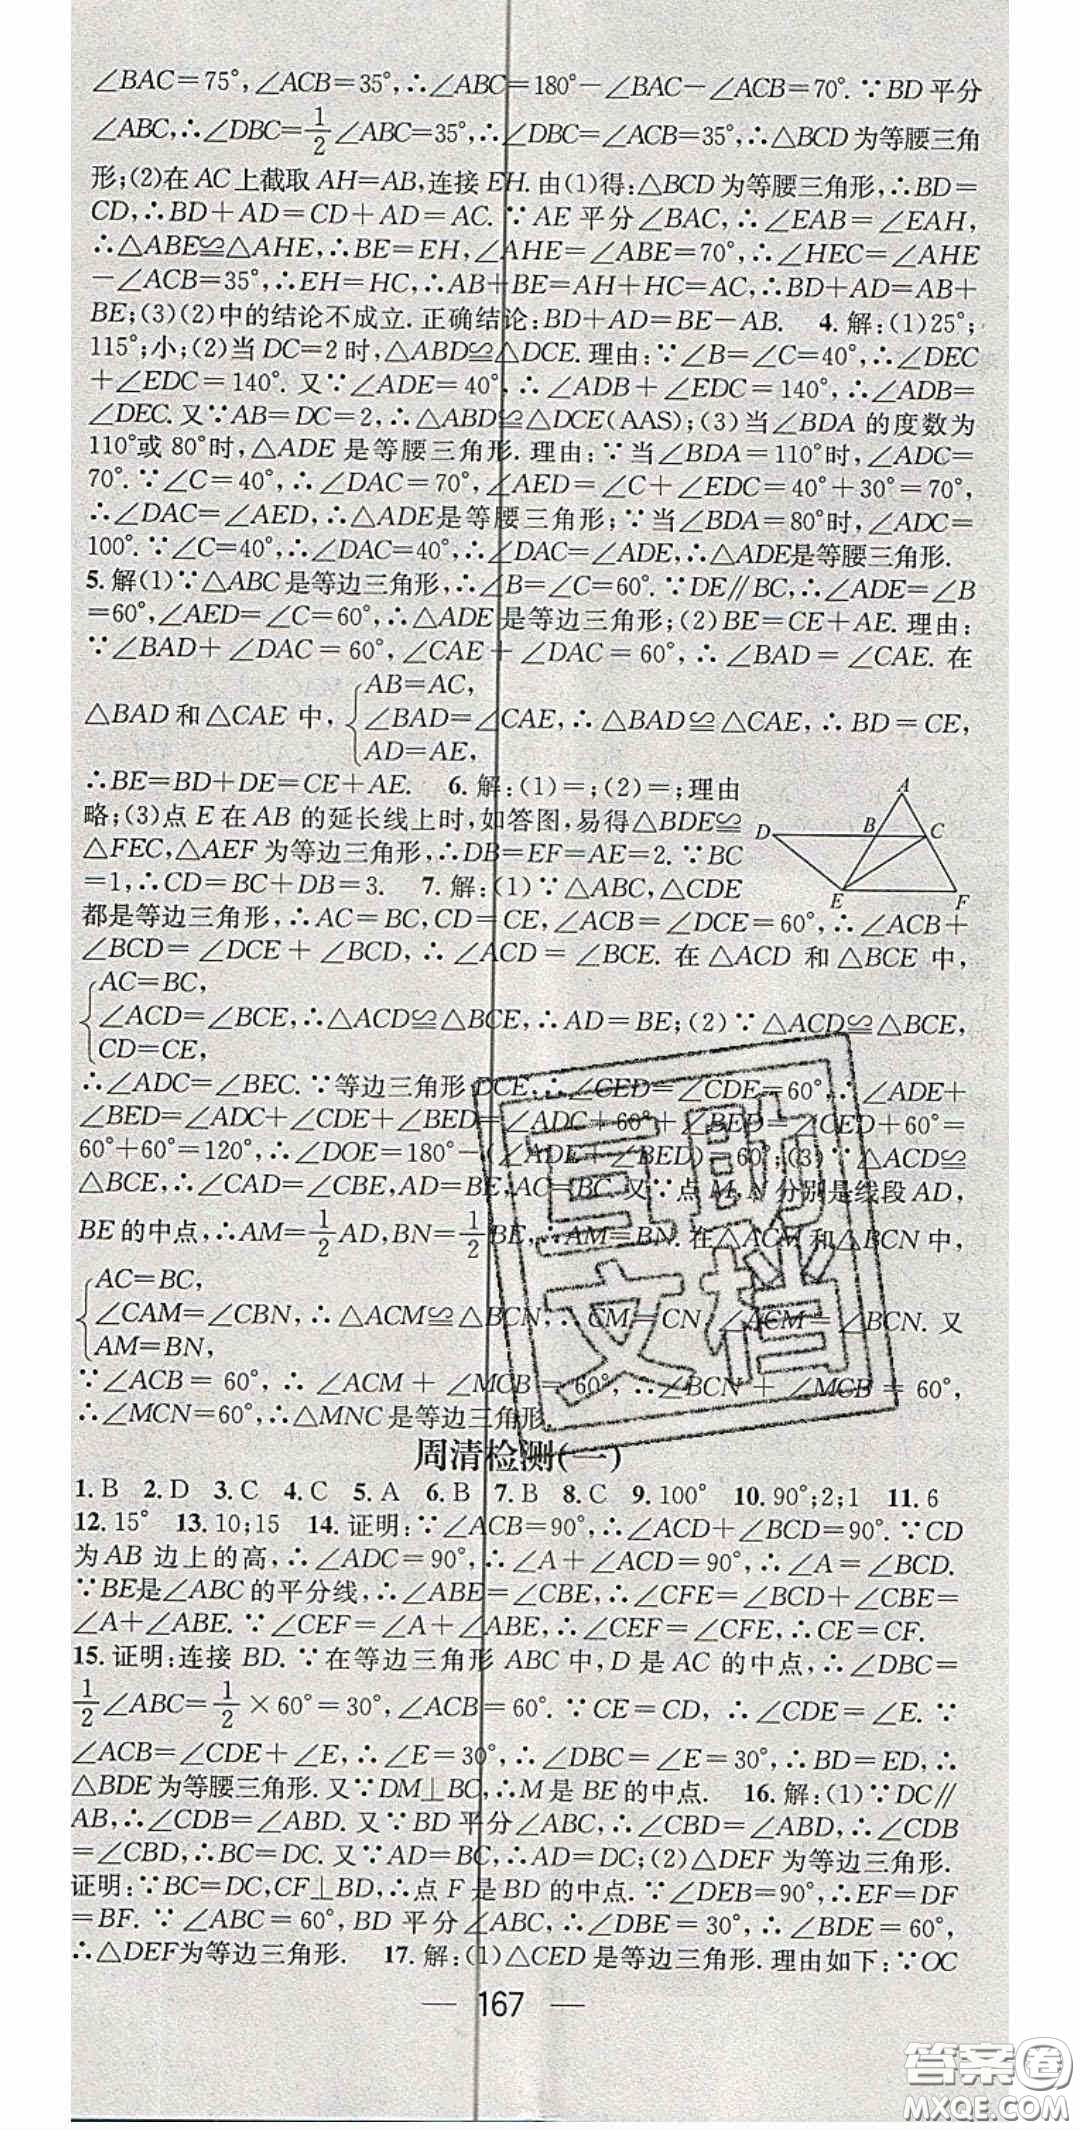 ∠BAC=75°,∠ACB=35°,∴∠ABC=180°-∠BAC-∠ACB=70°.∵BD平分
∠ABC,∴∠DBC=1/2∠ABC=35°,∴∠DBC=∠ACB=35°,∴△BCD为等腰三角
形;(2)在AC上截取AH=AB,连接EH.由(1)得:△BCD为等腰三角形,∴BD=
CD,∴BD+AD=CD+AD=AC.∵AE平分∠BAC,∴∠EAB=∠EAH,
∴△ABE≌△AHE,∴BE=EH,∠AHE=∠ABE=70°,∴∠HEC=∠AHE
-∠ACB=35°,∴EH=HC,∴AB+BE=AH+HC=AC,∴BD+AD=AB+
BE;(3)(2)中的结论不成立.正确结论:BD+AD=BE-AB. 4.解:(1)25°;
115°;小;(2)当DC=2时,△ABD≌△DCE.理由:∵∠B=∠C=40°,∴∠DEC
+∠EDC=140°.又∵∠ADE=40°,∴∠ADB+∠EDC=140°,∴∠ADB=
∠DEC.又∵AB=DC=2,∴△ABD≌△DCE(AAS);(3)当∠BDA的度数为
110°或80°时,△ADE是等腰三角形.理由:∵当∠BDA=110°时,∠ADC=
70°.∵∠C=40°,∴∠DAC=70°,∠AED=∠C+∠EDC=40°+30°=70°,
∴∠DAC=∠AED,∴△ADE是等腰三角形;∵当∠BDA=80°时,∠ADC=
100°.∵∠C=40°,∴∠DAC=40°,∴∠DAC=∠ADE,∴△ADE是等腰三角形.
5.解(1)∵△ABC是等边三角形,∴∠B=∠C=60°.∵DE∥BC,∴∠ADE=∠B
=60°,∠AED=∠C=60°,∴△ADE是等边三角形;(2)BE=CE+AE.理由:
∵∠BAD+∠DAC=60°,∠CAE+∠DAC=60°,∴∠BAD=∠CAE.在
AB=AC,
△BAD和△CAE中,{∠BAD=∠CAE,∴△BAD≌△CAE,∴BD=CE,
AD=AE,
∴BE=BD+DE=CE+AE. 6.解:(1)=;(2)=;理由
略;(3)点E在AB的延长线上时,如答图,易得△BDE≌
△FEC,△AEF为等边三角形,∴DB=EF=AE=2.∵BC
=1,∴CD=BC+DB=3. 7.解:(1)∵△ABC,△CDE
A
D
B
C
E
F
都是等边三角形,∴AC=BC,CD=CE,∠ACB=∠DCE=60°,∴∠ACB+
∠BCD=∠DCE+∠BCD,∴∠ACD=∠BCE.在△ACD和△BCE中,
AC=BC,
{∠ACD=∠BCE,∴△ACD≌△BCE,∴AD=BE;(2)∵△ACD≌△BCE,
CD=CE,
∴∠ADC=∠BEC.∵等边三角形DCE,∴∠CED=∠CDE=60°,∴∠ADE+
∠BED=∠ADC+∠CDE+∠BED=∠ADC+60°+∠BED=∠CED+60°=
60°+60°=120°,∴∠DOE=180°-(∠ADE+∠BED)=60°;(3)∵△ACD≌
△BCE,∴∠CAD=∠CBE,AD=BE,AC=BC.又∵点M,N分别是线段AD,
BE的中点,∴AM=1/2AD,BN=1/2BE,∴AM=BN.在△ACM和△BCN中,
AC=BC,
{∠CAM=∠CBN,∴△ACM≌△BCN,∴CM=CN,∠ACM=∠BCN.又
AM=BN,
∵∠ACB=60°,∴∠ACM+∠MCB=60°,∴∠BCN+∠MCB=60°,
∴∠MCN=60°,∴△MNC是等边三角形.
周清检测(一)
1.B 2.D 3.C 4.C 5.A 6.B 7.B 8.C 9.100° 10.90°;2;1 11.6
12.15° 13.10;15 14.证明:∵∠ACB=90°,∴∠ACD+∠BCD=90°.∵CD
为AB边上的高,∴∠ADC=90°,∴∠A+∠ACD=90°,∴∠A=∠BCD.
∵BE是∠ABC的平分线,∴∠ABE=∠CBE,∴∠CFE=∠BCD+∠CBE=
∠A+∠ABE.∵∠CEF=∠A+∠ABE,∴∠CEF=∠CFE,∴CE=CF.
15.证明:连接BD.∵在等边三角形ABC中,D是AC的中点,∴∠DBC=
1/2∠ABC=1/2×60°=30°,∠ACB=60°.∵CE=CD,∴∠CDE=∠E.∵
∠ACB=∠CDE+∠E,∴∠E=30°,∴∠DBC=∠E=30°,∴BD=ED,∴
△BDE为等腰三角形.又∵DM⊥BC,∴M是BE的中点. 16.解:(1)∵DC∥
AB,∴∠CDB=∠ABD.又∵BD平分∠ABC,∴∠CBD=∠ABD,∴∠CDB
=∠CBD,∴BC=DC.又∵AD=BC,∴AD=DC;(2)△DEF为等边三角形.
证明:∵BC=DC,CF⊥BD,∴点F是BD的中点.∵∠DEB=90°,∴EF=DF
=BF.∵∠ABC=60°,BD平分∠ABC,∴∠DBE=30°,∴∠BDE=60°,
∴△DEF为等边三角形. 17.解:(1)△CED是等边三角形.理由如下:∵OC
— 167 —
百助
文档
答案卷
MXQE.COM